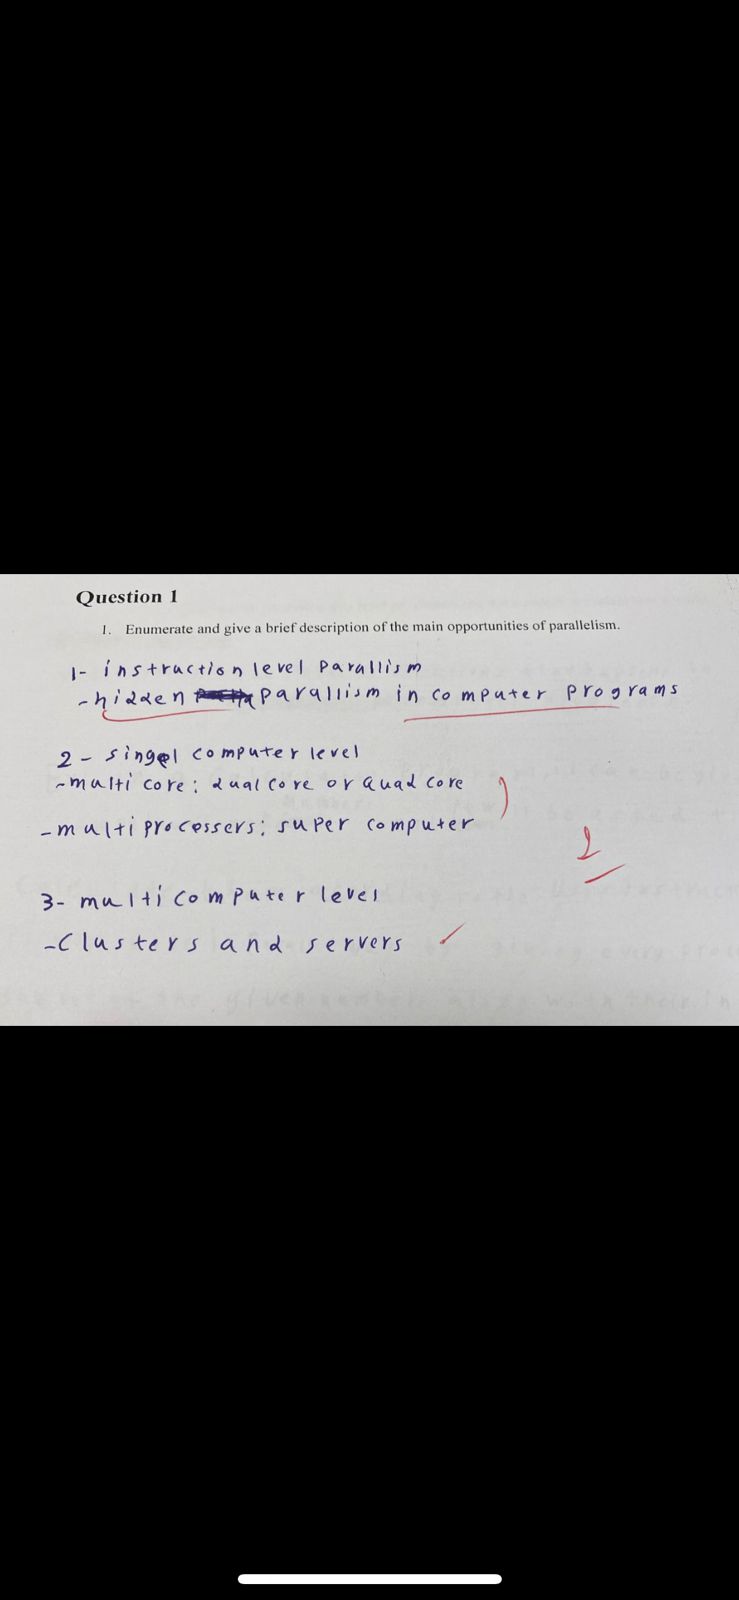 Question 1
1. Enumerate and give a brief description of the main opportunities of parallelism.
1- instruction level Parallism
- hidden parallism in computer programs
2- singel computer level
- multi core: dual core or Quad core
- multi processers; super computer
3- multi computer level
- Clusters and servers
2